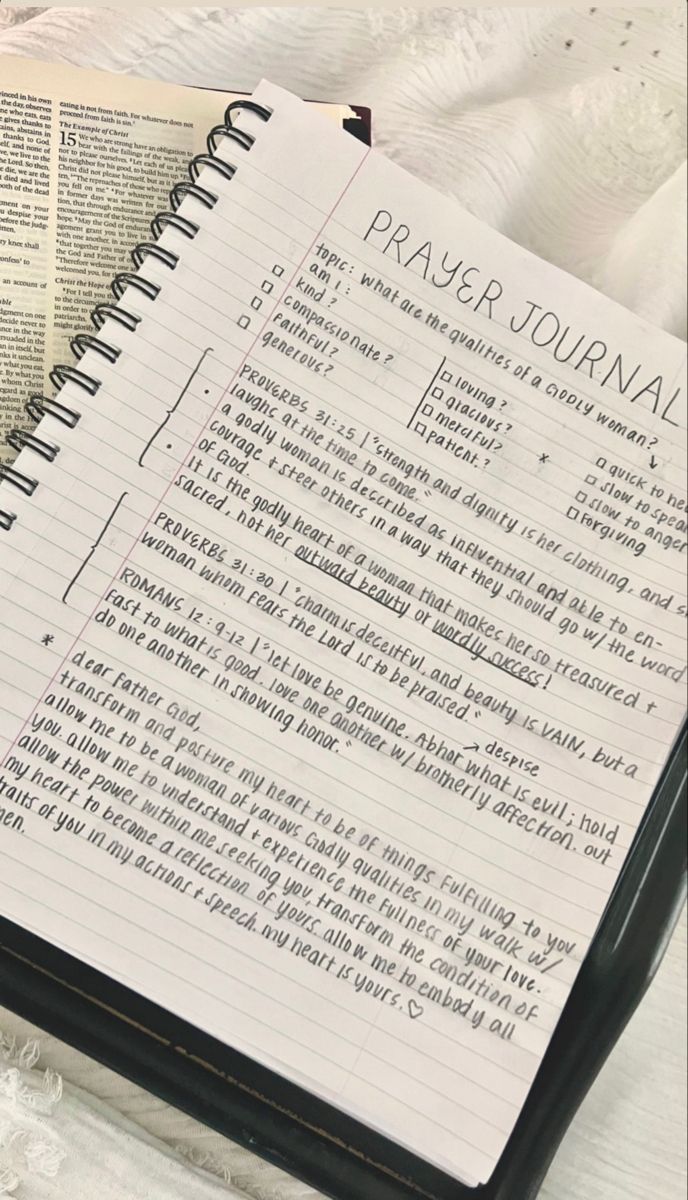 rinced in his own
the day, observes
ne who eats, eats
e gives thanks to
ains, abstains in
thanks to God.
elf, and none of
ve, we live to the
he Lord. So then,
e die, we are the
t died and lived
both of the dead
ment on your
u despise your
before the judg-
itten,
ry knee shall
confess to
an account of
dgment on one
decide never to
ance in the way
rsuaded in the
an in itself, but
nks it unclean.
y what you eat,
e. By what you
whom Christ
egard as good
eating is not from faith. For whatever does not
proceed from faith is sin.
The Example of Christ
15 We who are strong have an obligation to
bear with the failings of the weak, and
not to please ourselves. Let each of us please
his neighbor for his good, to build him up.
Christ did not please himself, but as it is
ten, "The reproaches of those who rep
you fell on me." For whatever was
in former days was written for our
tion, that through endurance and
encouragement of the Scriptures
hope. May the God of endurance
agement grant you to live in
with one another, in accord
that together you may
the God and Father of
Therefore welcome one
welcomed you, for
Christ the Hope o
For I tell you th
to the circumc
in order to c
patriarchs,
might glorify
PRAYER JOURNAL
topic: what are the qualities of a GODLY woman?
am I:
□ kind?
□ compassionate?
□ faithful?
□ generous?
□ loving?
□ gracious?
□ merciful?
□ patient?
*
□ quick to he
□ slow to spea
□ slow to anger
□ forgiving
PROVERBS 31:25 | "strength and dignity is her clothing, and s
laughs at the time to come."
• a godly woman is described as influential and able to en-
courage + steer others in a way that they should go w/ the word
of God.
• it is the godly heart of a woman that makes her so treasured +
sacred, not her outward beauty or wordly success!
PROVERBS 31:30 | "charm is deceitful, and beauty is VAIN, but a
woman whom fears the Lord is to be praised."
→ despise
ROMANS 12:9-12 | "let love be genuine. Abhor what is evil; hold
fast to what is good. love one another w/ brotherly affection. out
do one another in showing honor."
* dear Father God,
transform and posture my heart to be of things fulfilling to you.
allow me to be a woman of various Godly qualities in my walk w/
you. allow me to understand + experience the fullness of your love.
allow the power within me seeking you, transform the condition of
my heart to become a reflection of yours. allow me to embody all
traits of you in my actions + speech. my heart is yours. ♡
men.